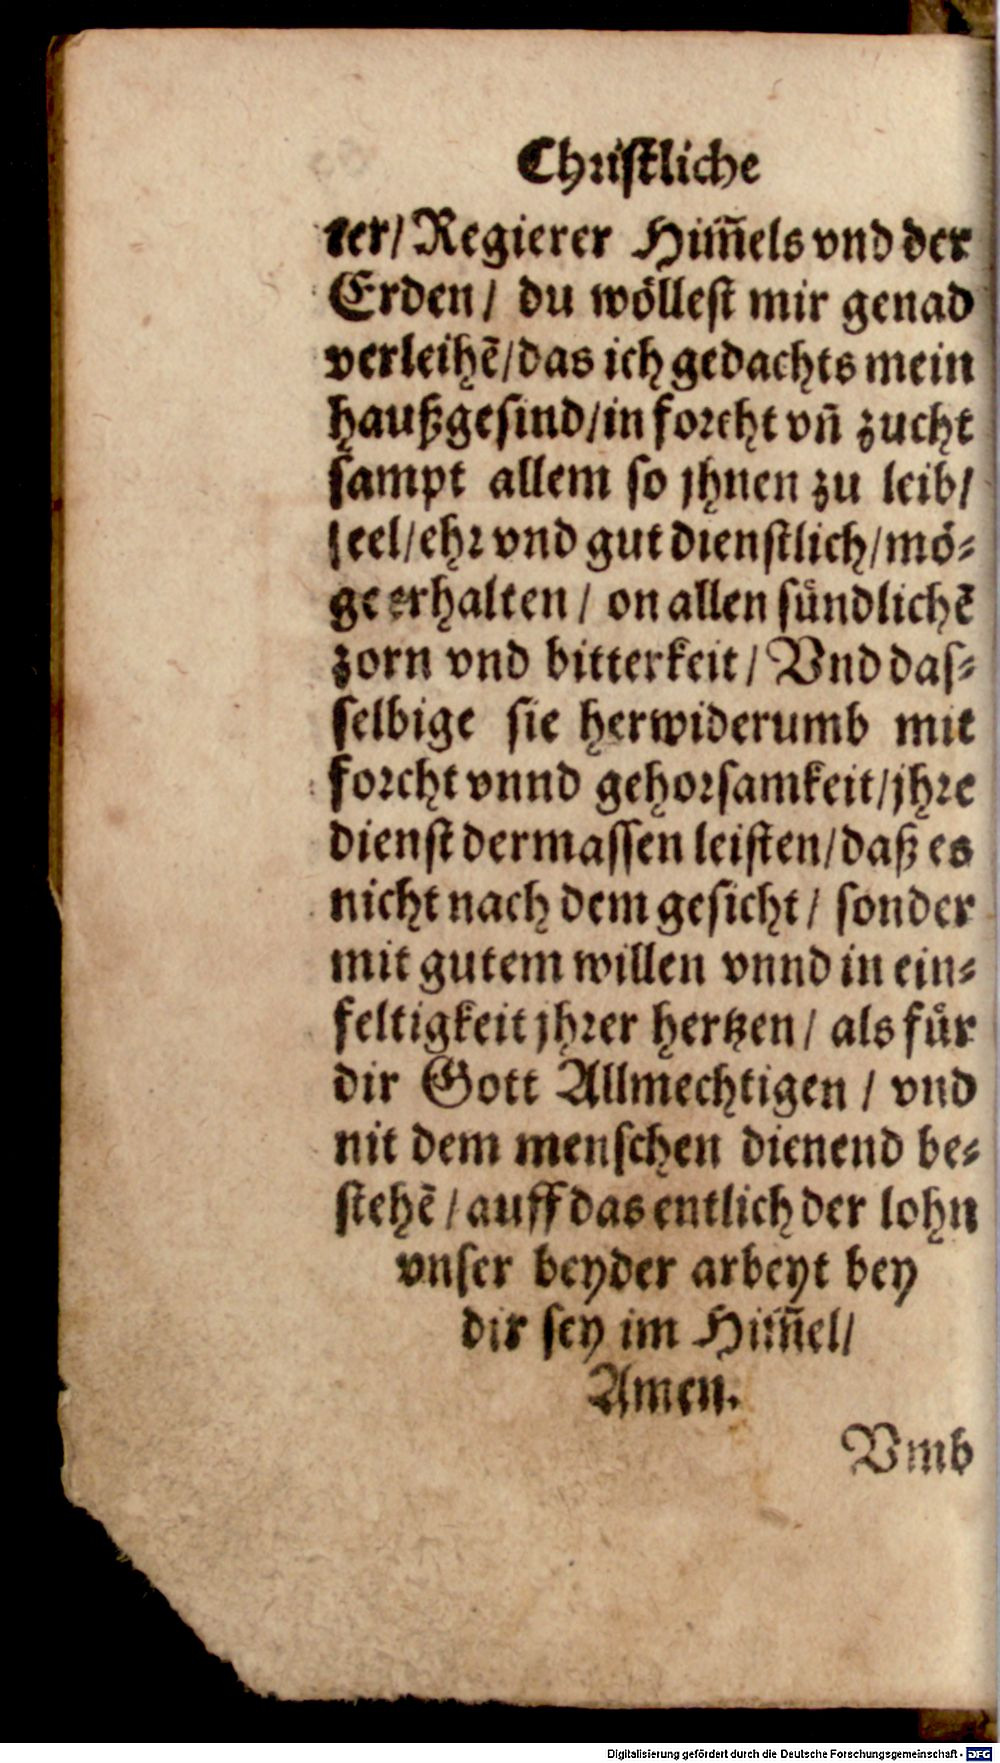 Christliche
ter/ Regierer Him̃els vnd der
Erden/ du wöllest mir genad
verleihẽ/das ich gedachts mein
haußgesind/in forcht vn̄ zucht
sampt allem so jhnen zu leib/
seel/ehr vnd gut dienstlich/mö-
ge erhalten/ on allen sündlichẽ
zorn vnd bitterkeit/ Vnd das-
selbige sie herwiderumb mit
forcht vnnd gehorsamkeit/jhre
dienst dermassen leisten/daß es
nicht nach dem gesicht/ sonder
mit gutem willen vnnd in ein-
feltigkeit jhrer hertzen/ als für
dir Gott Allmechtigen/ vnd
nit dem menschen dienend be-
stehẽ/auff das entlich der lohn
vnser beyder arbeyt bey
dir sey im Him̃el/
Amen.
Vmb
Digitalisierung gefördert durch die Deutsche Forschungsgemeinschaft - DFG